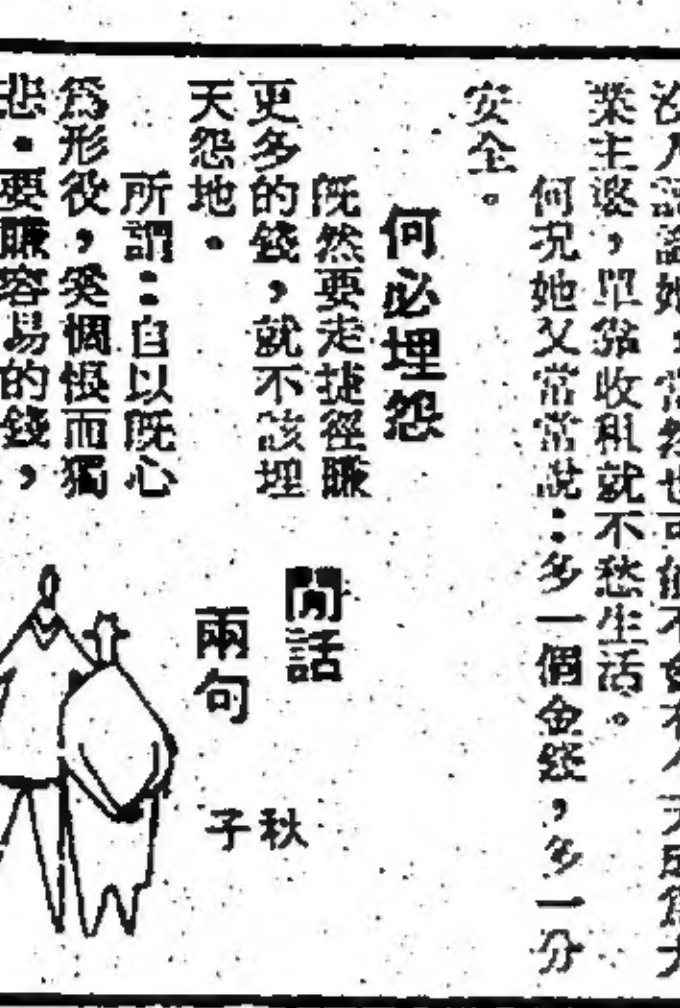 業主婆，單靠收租就不愁生活。
何況她又常常說：多一個金錢，多一分
安全。
何必埋怨
既然要走捷徑賺
更多的錢，就不該埋
天怨地。
所謂：自以既心
為形役，奚惆悵而獨
悲。要賺容易的錢，
閒話
兩句
秋子